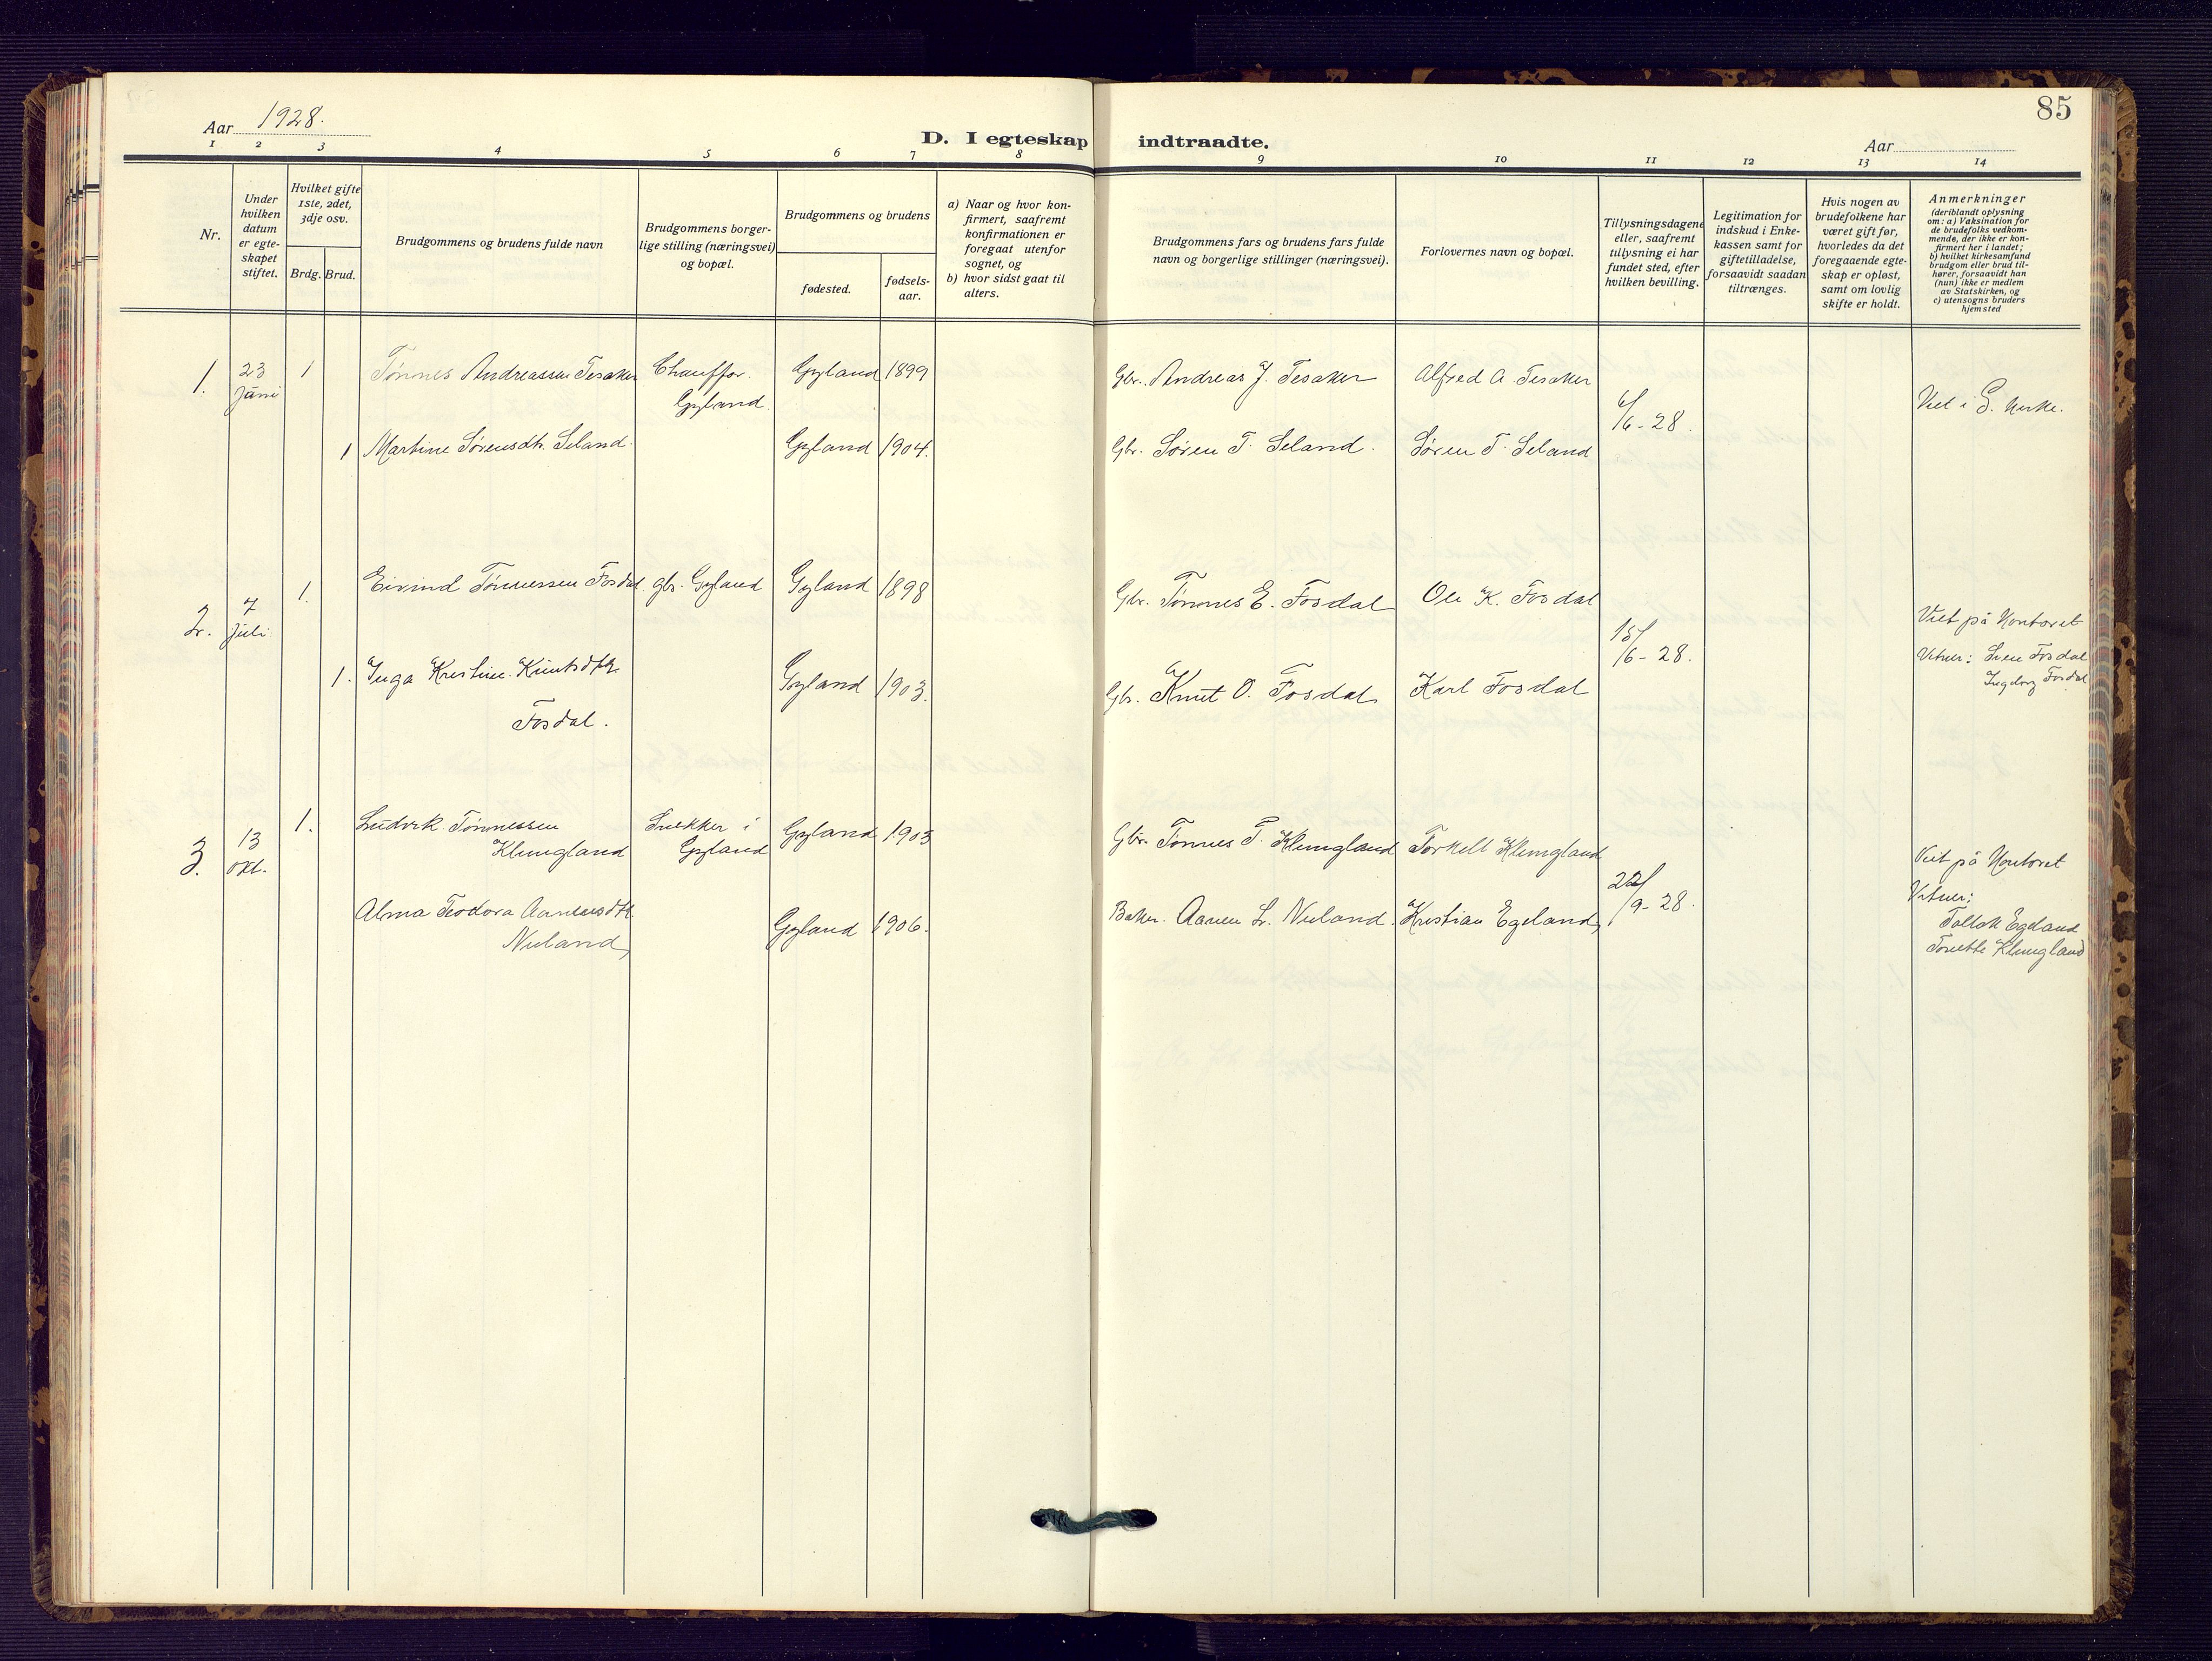 85
Aar 1928.
D. I egteskap indtraadte.
Aar
1 2 3 4 5 6 7 8 9 10 11 12 13 14
Nr.
Under
hvilken
datum
er egte-
skapet
stiftet.
Hvilket gifte
1ste, 2det,
3dje osv.
Brdg. Brud.
Brudgommens og brudens fulde navn
Brudgommens borger-
lige stilling (næringsvei)
og bopæl.
Brudgommens og brudens
fødested.
fødsels-
aar.
a) Naar og hvor kon-
firmert, saafremt
konfirmationen er
foregaat utenfor
sognet, og
b) hvor sidst gaat til
alters.
Brudgommens fars og brudens fars fulde
navn og borgerlige stillinger (næringsvei).
Forlovernes navn og bopæl.
Tillysningsdagene
eller, saafremt
tillysning ei har
fundet sted, efter
hvilken bevilling.
Legitimation for
indskud i Enke-
kassen samt for
giftetilladelse,
forsaavidt saadan
tiltrænges.
Hvis nogen av
brudefolkene har
været gift før,
hvorledes da det
foregaaende egte-
skap er opløst,
samt om lovlig
skifte er holdt.
Anmerkninger
(deriblandt oplysning
om: a) Vaksination for
de brudefolks vedkom-
mende, der ikke er kon-
firmert her i landet;
b) hvilket kirkesamfund
brudgom eller brud til-
hører, forsaavidt han
(hun) ikke er medlem
av Statskirken, og
c) utensogns bruders
hjemsted
1. 23 Juni 1 Tønnes Andreassen Tesaker Chauffør. Gyland 1899 Gbr. Andreas J. Tesaker Alfred A. Tesaker
Gyland 6/6-28. Viet i G. kirke.
1 Martine Sørensdtr. Seland. Gyland 1904. Gbr. Søren T. Seland. Søren T. Seland
2. 7 Juli 1. Eivind Tønnessen Fosdal gbr. Gyland Gyland 1898 Gbr. Tønnes E. Fosdal Ole K. Fosdal
15/6-28. Viet på Kontoret
Vitner: Fosdal
1. Inga Kristine Knutsdtr. Gyland 1903. Gbr. Knut O. Fosdal Karl Fosdal
Ingborg Fosdal
Fosdal.
3. 13 okt. 1. Ludvik Tønnessen Snekker i Gyland 1903 Gbr. Tønnes T. Klungland Torkell Klungland
Klungland Gyland
22/9-28. Viet på Kontoret
Vitner:
Alma Teodora Aanensdtr. Gyland 1906. Baker. Aanen L. Nuland. Kristian Egeland,
Tallak Egeland
Nuland,
Tonette Klungland